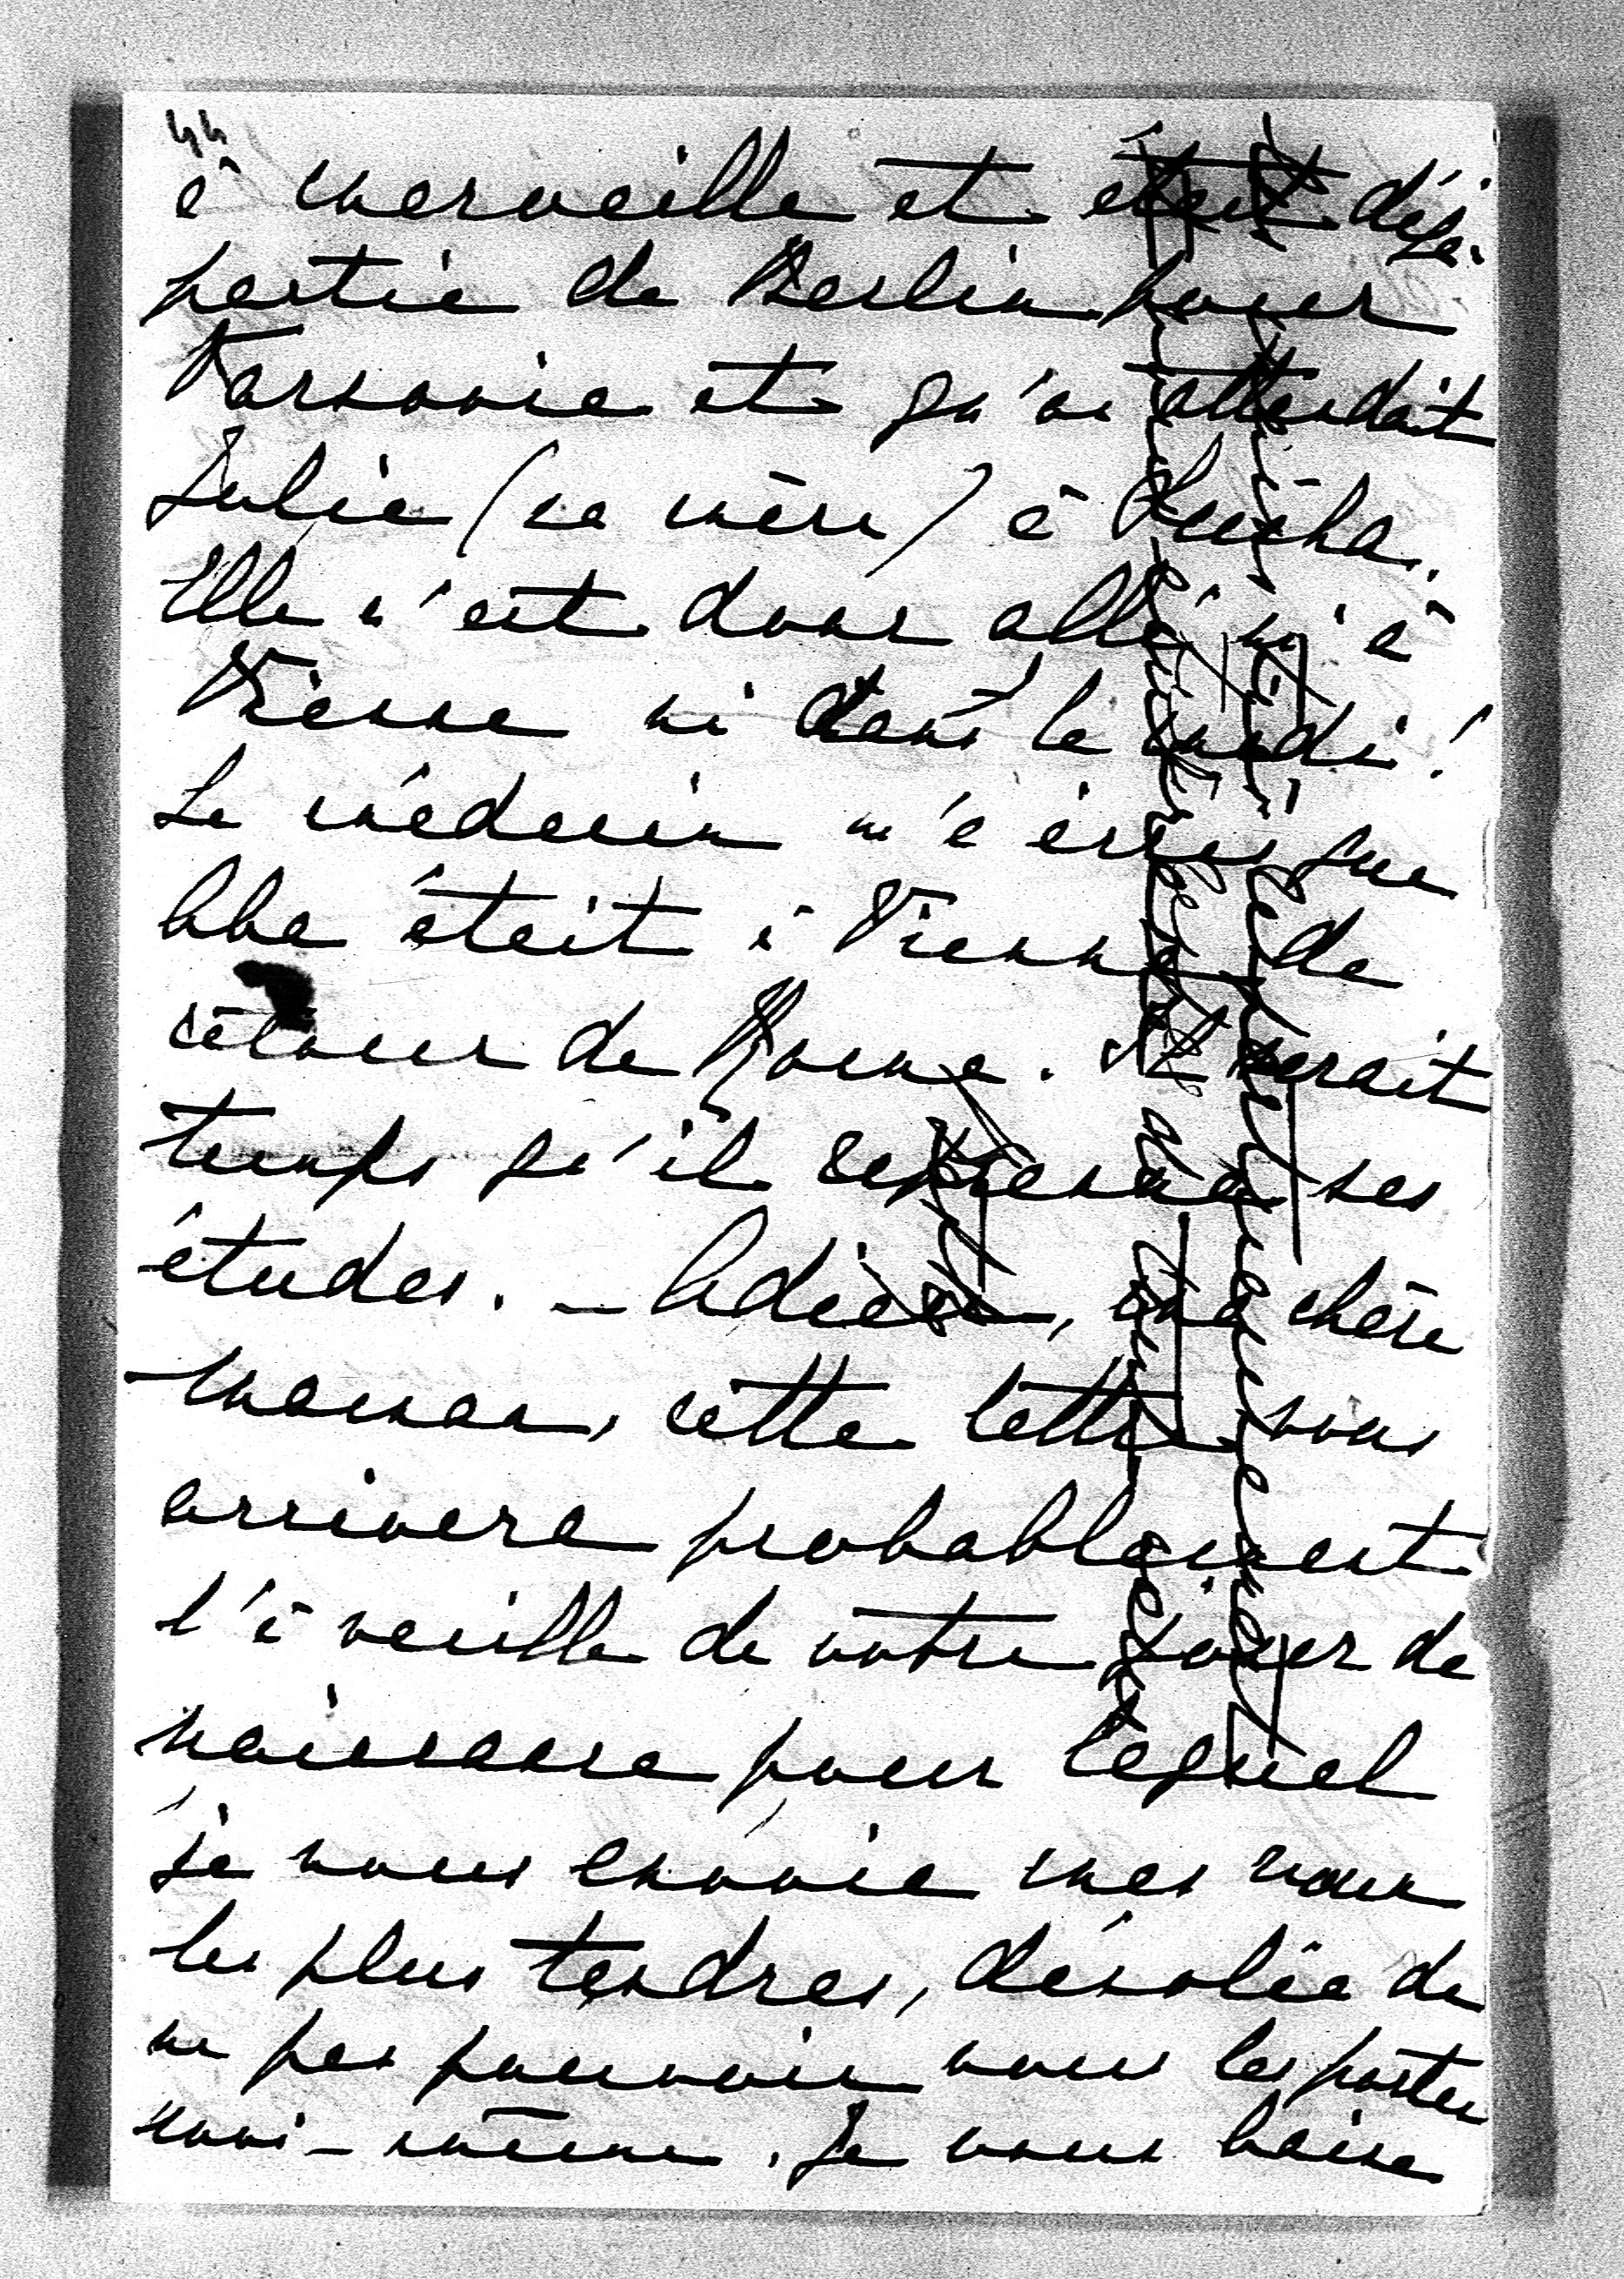 44
à merveille et était déjà
partie de Berlin pour
Varsovie et qu'on attendait
Julie (sa mère) à
Elle n'est donc allé ni à
Vienne ni dans le midi !
Le médecin m'a écrit que
Aba était à Vienne de
retour de Rome. Il serait
temps qu'il reprenne ses
études. — Adieu, ma chère
maman, cette lettre vous
arrivera probablement
l'à veille de votre jour de
naissance pour lequel
je vous envoie mes vœux
les plus tendres, désolée de
ne pas pouvoir vous les porter
moi-même. Je vous baise